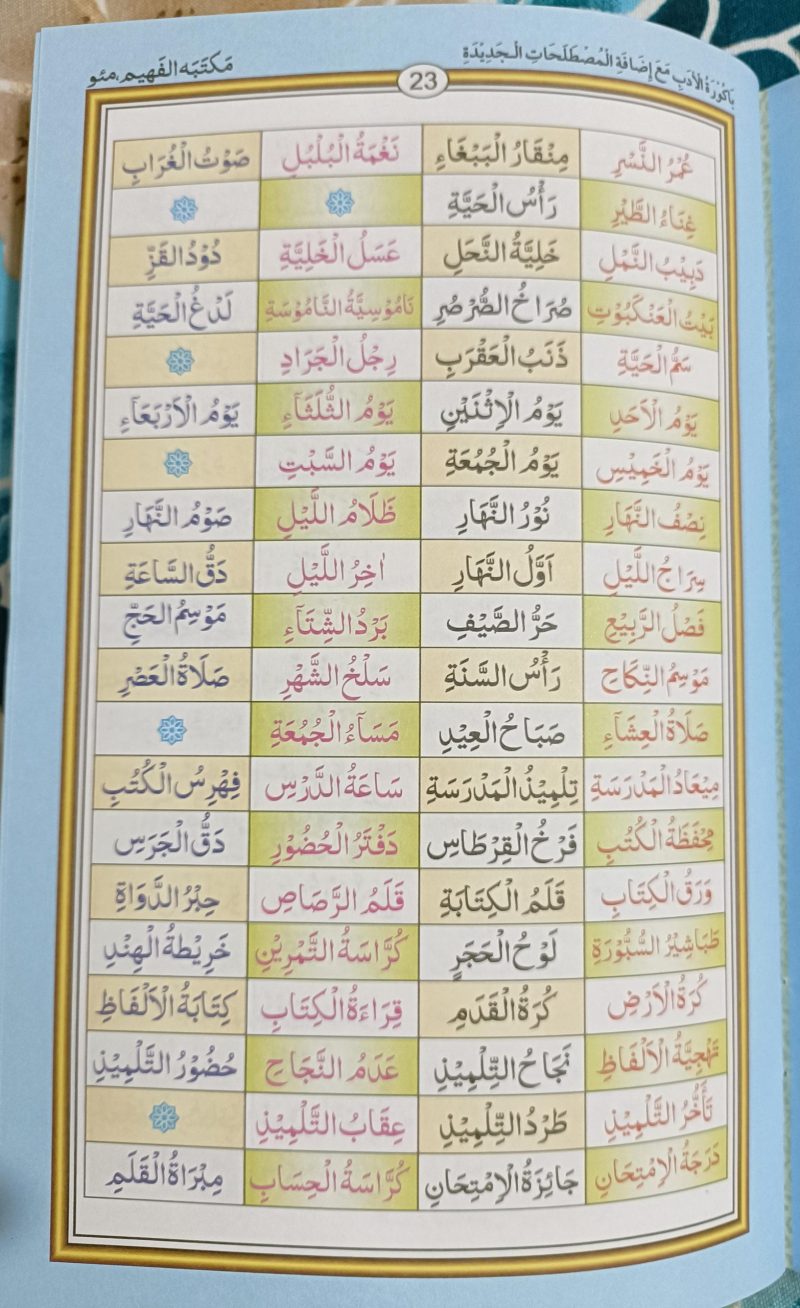 بَاكُوْرَةُ الْأَدَبِ مَعَ إِضَافَةِ الْمُصْطَلَحَاتِ الْجَدِيْدَةِ 23 مَكتَبَه الفَهِيم،مئو
عُمْرُ النَّسْرِ مِنْقَارُ الْبَبْغَاءِ نَغْمَةُ الْبُلْبُلِ صَوْتُ الْغُرَابِ
غِنَاءُ الطَّيْرِ رَأْسُ الْحَيَّةِ
دَبِيْبُ النَّمْلِ خَلِيَّةُ النَّحَلِ عَسَلُ الْخَلِيَّةِ دُوْدُ الْقَزِّ
بَيْتُ الْعَنْكَبُوْتِ صُرَاخُ الصُّرْصُرِ نَامُوْسِيَّةُ النَّامُوْسَةِ لَدْغُ الْحَيَّةِ
سَمُّ الْحَيَّةِ ذَنَبُ الْعَقْرَبِ رِجْلُ الْجَرَادِ
يَوْمُ الْاَحَدِ يَوْمُ الْاِثْنَيْنِ يَوْمُ الثُّلَثَآءِ يَوْمُ الْاَرْبَعَاءِ
يَوْمُ الْخَمِيْسِ يَوْمُ الْجُمُعَةِ يَوْمُ السَّبْتِ
نِصْفُ النَّهَارِ نُوْرُ النَّهَارِ ظَلَامُ اللَّيْلِ صَوْمُ النَّهَارِ
سِرَاجُ اللَّيْلِ اَوَّلُ النَّهَارِ اٰخِرُ اللَّيْلِ دَقُّ السَّاعَةِ
فَصْلُ الرَّبِيْعِ حَرُّ الصَّيْفِ بَرْدُ الشِّتَآءِ مَوْسِمُ الْحَجِّ
مَوْسِمُ النِّكَاحِ رَأْسُ السَّنَةِ سَلْخُ الشَّهْرِ صَلَاةُ الْعَصْرِ
صَلَاةُ الْعِشَآءِ صَبَاحُ الْعِيْدِ مَسَآءُ الْجُمُعَةِ
مِيْعَادُ الْمَدْرَسَةِ تِلْمِيْذُ الْمَدْرَسَةِ سَاعَةُ الدَّرْسِ فِهْرِسُ الْكُتُبِ
مِحْفَظَةُ الْكُتُبِ فَرْخُ الْقِرْطَاسِ دَفْتَرُ الْحُضُوْرِ دَقُّ الْجَرَسِ
وَرَقُ الْكِتَابِ قَلَمُ الْكِتَابَةِ قَلَمُ الرَّصَاصِ حِبْرُ الدَّوَاةِ
طَبَاشِيْرُ السُّبُّوْرَةِ لَوْحُ الْحَجَرِ كُرَّاسَةُ التَّمْرِيْنِ خَرِيْطَةُ الْهِنْدِ
كُرَةُ الْاَرْضِ كُرَةُ الْقَدَمِ قِرَاءَةُ الْكِتَابِ كِتَابَةُ الْاَلْفَاظِ
تَهْجِيَّةُ الْاَلْفَاظِ نَجَاحُ التِّلْمِيْذِ عَدَمُ النَّجَاحِ حُضُوْرُ التِّلْمِيْذِ
تَأَخُّرُ التِّلْمِيْذِ طَرْدُ التِّلْمِيْذِ عِقَابُ التِّلْمِيْذِ
دَرَجَةُ الْاِمْتِحَانِ جَائِزَةُ الْاِمْتِحَانِ كُرَّاسَةُ الْحِسَابِ مِبْرَاةُ الْقَلَمِ